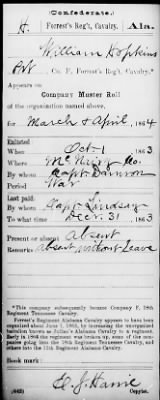 (Confederate.)
H. Forrest's Reg't, Cavalry. Ala.
William Hopkins
Pvt, Co. F, Forrest's Reg't, Cavalry.*
Appears on
Company Muster Roll
of the organization named above,
for March & April, 1864
Enlisted:
When Oct. 1, 1863
Where McMinn Co.
By whom Capt.
Period War
Last paid:
By whom Capt. Lindsay
To what time Dec. 31, 1863
Present or absent Absent
Remarks: Absent without Leave
*This company subsequently became Company F, 18th
Regiment Tennessee Cavalry.
Forrest's Regiment Alabama Cavalry appears to have
been organized about June 1, 1863, by increasing the reorganized
battalion known as Julian's Alabama Cavalry to a regiment.
Early in 1864 the regiment was broken up, some of the com-
panies going into the 18th Regiment Tennessee Cavalry, and
others into the 11th Regiment Alabama Cavalry.
Book mark:
(642)
Copyist.